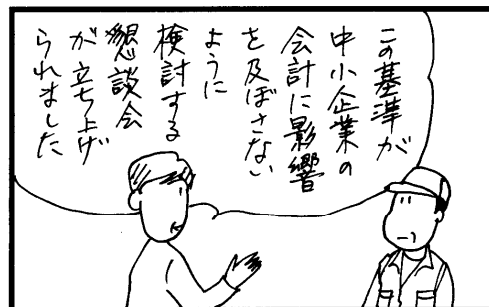 この基準が
中小企業の
会計に影響
を及ぼさない
ように
検討する
懇談会
が立ち上げ
られました